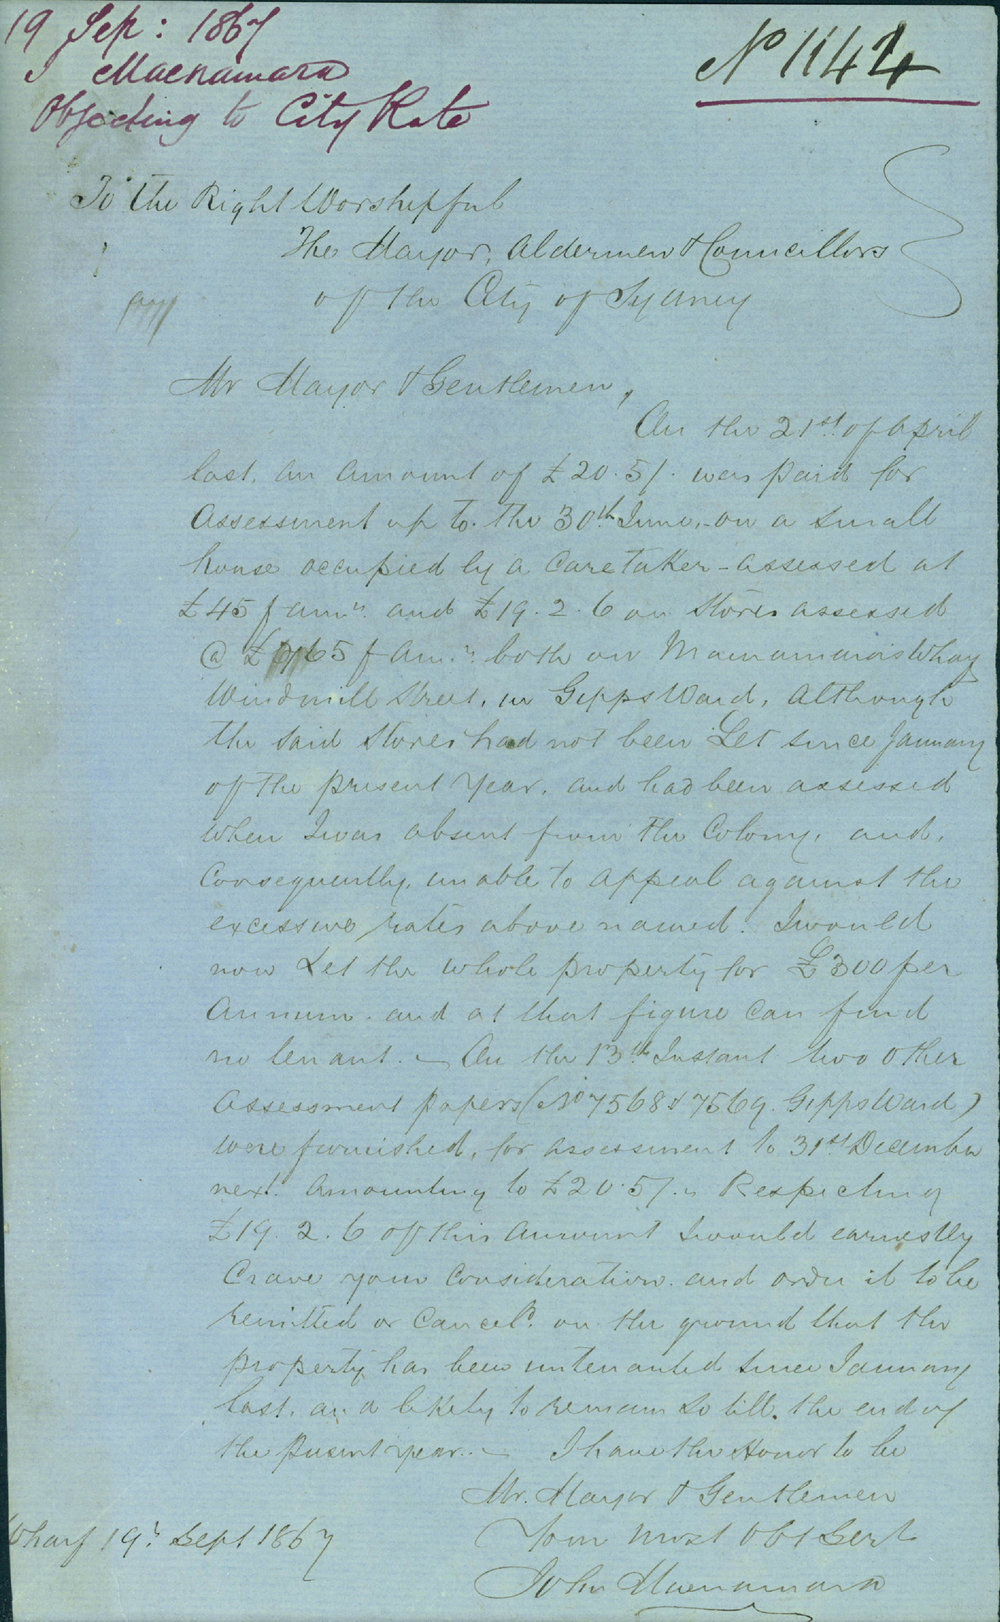 19 Sep: 1867
J Macnamara
Objecting to City Rate
No 1144
To the Right Worshipful
The Mayor, Aldermen & Councillors
of the City of Sydney
Mr Mayor & Gentlemen,
On the 21st of April
last, an amount of £20.5/. was paid for
Assessment up to the 30th June, on a small
house occupied by a Caretaker - assessed at
£45 p annm and £19.2.6 on Stores assessed
@ £ 65 p Ann: both on Macnamara's Wharf
Windmill Street, in Gipps Ward, Although
the said Stores had not been Let since January
of the present Year, and had been assessed
when I was absent from the Colony, and,
Consequently, unable to appeal against the
excessive rates above named. I would
now Let the whole property for £300 per
Annum. and at that figure can find
no tenant. - On the 13th Instant two other
Assessment papers (No 7568 & 7569. Gipps Ward)
were furnished, for assessment to 31st December
next. Amounting to £20.5/. " Respecting
£19.2.6 of this amount I would earnestly
Crave your Consideration. and order it to be
remitted or Canceld. on the ground that the
property has been untenanted since January
last, and likely to remain so till the end of
the present year. - I have the Honor to be
Mr. Mayor & Gentlemen
Your Most Obt Servt
John Macnamara
Wharf 19th Sept 1867